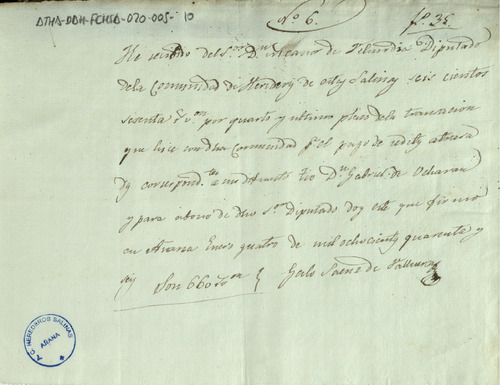 DTHA-DDH-FCHSA-020-005-10
N.o 6. fo. 35.
He recivido del S.or D.n Nicanor de Diputado
de la Comunidad de Hereder.s de estas Salinas seis cientos
sesenta r.s v.on por quarto y ultimo plazo de la transacion
que hice con dha Comunidad p.r el pago de redit.s atrasa
d.s correspond.tes a mi difunto tio D.n Gabriel de Ocharan
y para abono de dho S.or Diputado doy este que firmo
en Añana Enero quatro de mil ochocient.s quarenta y
seis
Son 660 r.s v.on Saenz de
C. HEREDEROS SALINAS
AÑANA